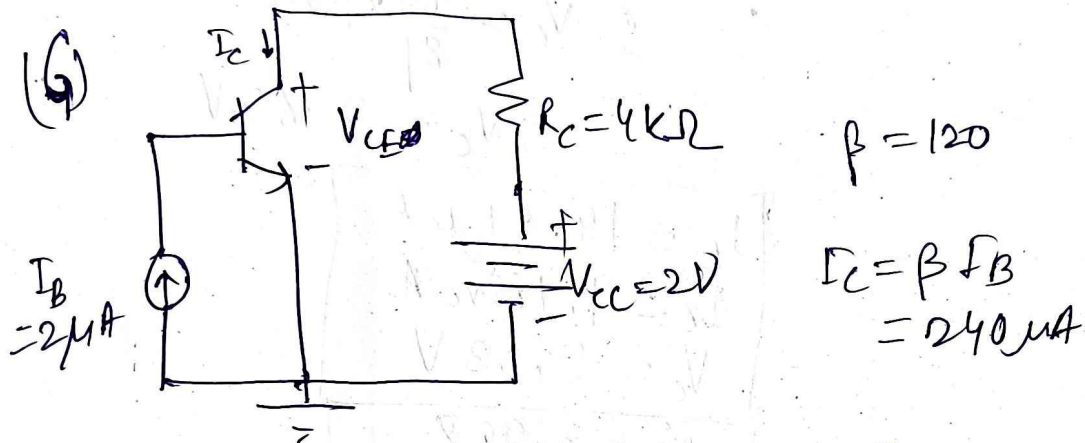 (G)
I_C ↓
+
V_CE
-
R_C = 4KΩ
β = 120
I_B
= 2μA
+
V_CC = 2V
-
I_C = β I_B
= 240 μA